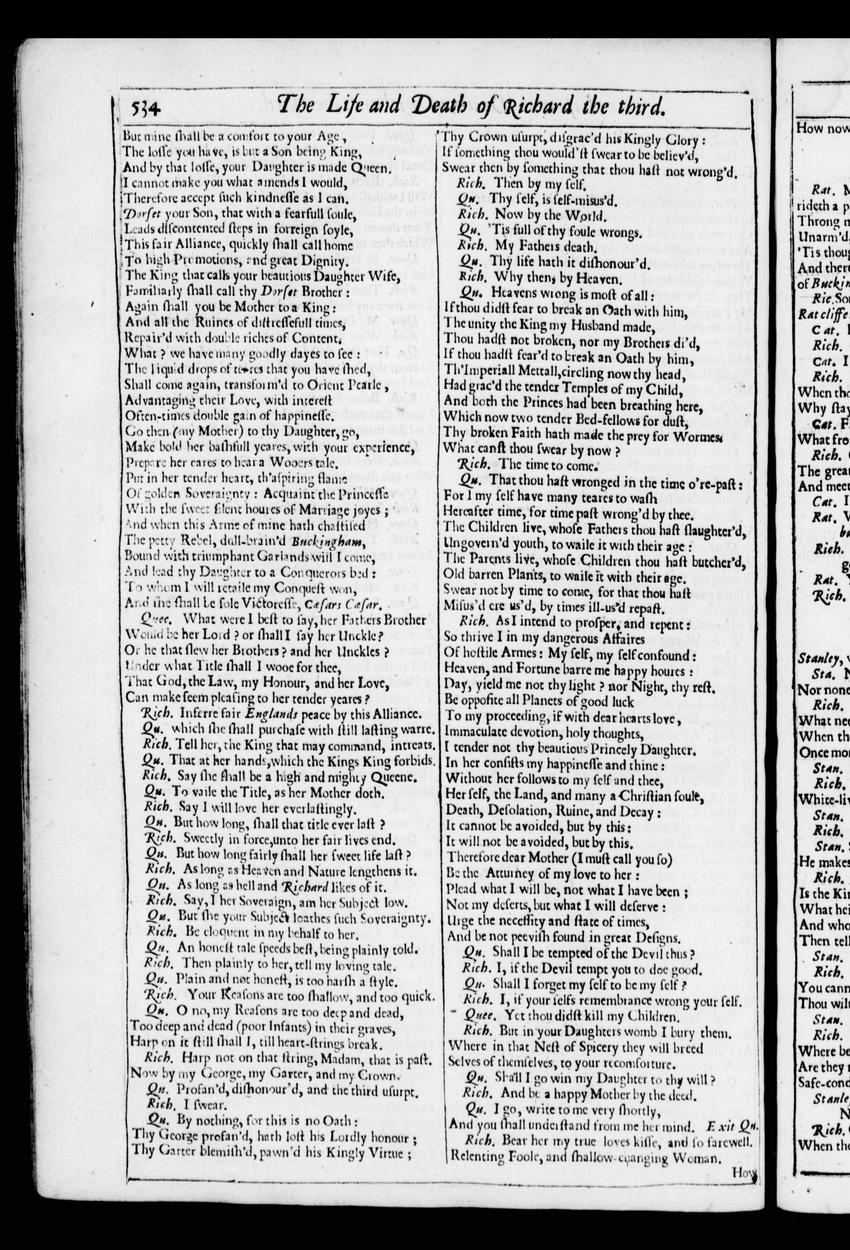 534 The Life and Death of Richard the third.
But mine ſhall be a comfort to your Age,
The loſſe you have, is but a Son being King,
And by that loſſe, your Daughter is made Queen.
I cannot make you what amends I would,
Therefore accept ſuch kindneſſe as I can.
Dorſet your Son, that with a fearfull ſoule,
Leads diſcontented ſteps in forreign ſoyle,
This fair Alliance, quickly ſhall call home
To high Promotions, and great Dignity.
The King that calls your beautious Daughter Wife,
Familiarly ſhall call thy Dorſet Brother:
Again ſhall you be Mother to a King:
And all the Ruines of diſtreſſefull times,
Repair'd with double riches of Content,
What? we have many goodly dayes to ſee:
The liquid drops of teares that you have ſhed,
Shall come again, transform'd to Orient Pearle,
Advantaging their Love, with intereſt
Often-times double gain of happineſſe.
Go then (my Mother) to thy Daughter, go,
Make bold her baſhfull yeares, with your experience,
Prepare her eares to hear a Wooers tale.
Put in her tender heart, th'aſpiring flame
Of golden Soveraignty: Acquaint the Princeſſe
With the ſweet ſilent houres of Marriage joyes;
And when this Arme of mine hath chaſtiſed
The petty Rebel, dull-brain'd Buckingham,
Bound with triumphant Garlands will I come,
And lead thy Daughter to a Conquerors bed:
To whom I will retaile my Conqueſt won,
And ſhe ſhall be ſole Victoreſſe, Cæſars Cæſar.
Quee. What were I beſt to ſay, her Fathers Brother
Would be her Lord? or ſhall I ſay her Unckle?
Or he that ſlew her Brothers? and her Unckles?
Under what Title ſhall I wooe for thee,
That God, the Law, my Honour, and her Love,
Can make ſeem pleaſing to her tender yeares?
Rich. Inferre fair Englands peace by this Alliance.
Qu. which ſhe ſhall purchaſe with ſtill laſting warre.
Rich. Tell her, the King that may command, intreats.
Qu. That at her hands, which the Kings King forbids.
Rich. Say ſhe ſhall be a high and mighty Queene.
Qu. To vaile the Title, as her Mother doth.
Rich. Say I will love her everlaſtingly.
Qu. But how long, ſhall that title ever laſt?
Rich. Sweetly in force, unto her fair lives end.
Qu. But how long fairly ſhall her ſweet life laſt?
Rich. As long as Heaven and Nature lengthens it.
Qu. As long as hell and Richard likes of it.
Rich. Say, I her Soveraign, am her Subject low.
Qu. But ſhe your Subject loathes ſuch Soveraignty.
Rich. Be eloquent in my behalf to her.
Qu. An honeſt tale ſpeeds beſt, being plainly told.
Rich. Then plainly to her, tell my loving tale.
Qu. Plain and not honeſt, is too harſh a ſtyle.
Rich. Your Reaſons are too ſhallow, and too quick.
Qu. O no, my Reaſons are too deep and dead,
Too deep and dead (poor Infants) in their graves,
Harp on it ſtill ſhall I, till heart-ſtrings break.
Rich. Harp not on that ſtring, Madam, that is paſt.
Now by my George, my Garter, and my Crown.
Qu. Profan'd, diſhonour'd, and the third uſurpt.
Rich. I ſwear.
Qu. By nothing, for this is no Oath:
Thy George profan'd, hath loſt his Lordly honour;
Thy Garter blemiſh'd, pawn'd his Kingly Virtue;
Thy Crown uſurpt, diſgrac'd his Kingly Glory:
If ſomething thou would'ſt ſwear to be believ'd,
Swear then by ſomething that thou haſt not wrong'd.
Rich. Then by my ſelf.
Qu. Thy ſelf, is ſelf-misus'd.
Rich. Now by the World.
Qu. 'Tis full of thy foule wrongs.
Rich. My Fathers death.
Qu. Thy life hath it diſhonour'd.
Rich. Why then, by Heaven.
Qu. Heavens wrong is moſt of all:
If thou didſt fear to break an Oath with him,
The unity the King my Husband made,
Thou hadſt not broken, nor my Brothers di'd,
If thou hadſt fear'd to break an Oath by him,
Th'Imperiall Mettall, circling now thy head,
Had grac'd the tender Temples of my Child,
And both the Princes had been breathing here,
Which now two tender Bed-fellows for duſt,
Thy broken Faith hath made the prey for Wormes.
What canſt thou ſwear by now?
Rich. The time to come.
Qu. That thou haſt wronged in the time o're-paſt:
For I my ſelf have many teares to waſh
Hereafter time, for time paſt wrong'd by thee.
The Children live, whoſe Fathers thou haſt ſlaughter'd,
Ungovern'd youth, to waile it with their age:
The Parents live, whoſe Children thou haſt butcher'd,
Old barren Plants, to waile it with their age.
Swear not by time to come, for that thou haſt
Miſus'd ere us'd, by times ill-us'd repaſt.
Rich. As I intend to proſper, and repent:
So thrive I in my dangerous Affaires
Of hoſtile Armes: My ſelf, my ſelf confound:
Heaven, and Fortune barre me happy houres:
Day, yield me not thy light? nor Night, thy reſt.
Be oppoſite all Planets of good luck
To my proceeding, if with dear hearts love,
Immaculate devotion, holy thoughts,
I tender not thy beautious Princely Daughter.
In her conſiſts my happineſſe and thine:
Without her follows to my ſelf and thee,
Her ſelf, the Land, and many a Chriſtian ſoule,
Death, Deſolation, Ruine, and Decay:
It cannot be avoided, but by this:
It will not be avoided, but by this.
Therefore dear Mother (I muſt call you ſo)
Be the Atturney of my love to her:
Plead what I will be, not what I have been;
Not my deſerts, but what I will deſerve:
Urge the neceſſity and ſtate of times,
And be not peeviſh found in great Deſigns.
Qu. Shall I be tempted of the Devil thus?
Rich. I, if the Devil tempt you to doe good.
Qu. Shall I forget my ſelf to be my ſelf?
Rich. I, if your ſelfs remembrance wrong your ſelf.
Quee. Yet thou didſt kill my Children.
Rich. But in your Daughters womb I bury them.
Where in that Neſt of Spicery they will breed
Selves of themſelves, to your recomforture.
Qu. Shall I go win my Daughter to thy will?
Rich. And be a happy Mother by the deed.
Qu. I go, write to me very ſhortly,
And you ſhall underſtand from me her mind. Exit Qu.
Rich. Bear her my true loves kiſſe, and ſo farewell.
Relenting Foole, and ſhallow-changing Woman.
How
How now
Rat. M
rideth a p
Throng m
Unarm'd,
'Tis thoug
And there
of Buckin
Ric. So
Ratcliffe
Cat. I
Rich.
Cat. I
Rich.
When tho
Why ſtay
Cat. F
What fro
Rich. O
The great
And meet
Cat. I
Rat. V
Rich.
g
Rat. Y
Rich.
Stanley, v
Sta. N
Nor none
Rich.
What nee
When th
Once mor
Stan.
Rich.
White-liv
Stan.
Rich.
Stan. S
He makes
Rich. I
Is the Kin
What hei
And who
Then tell
Stan.
Rich.
You cann
Thou wilt
Stan.
Rich.
Where be
Are they n
Safe-cond
Stanle
N
Rich. C
When the